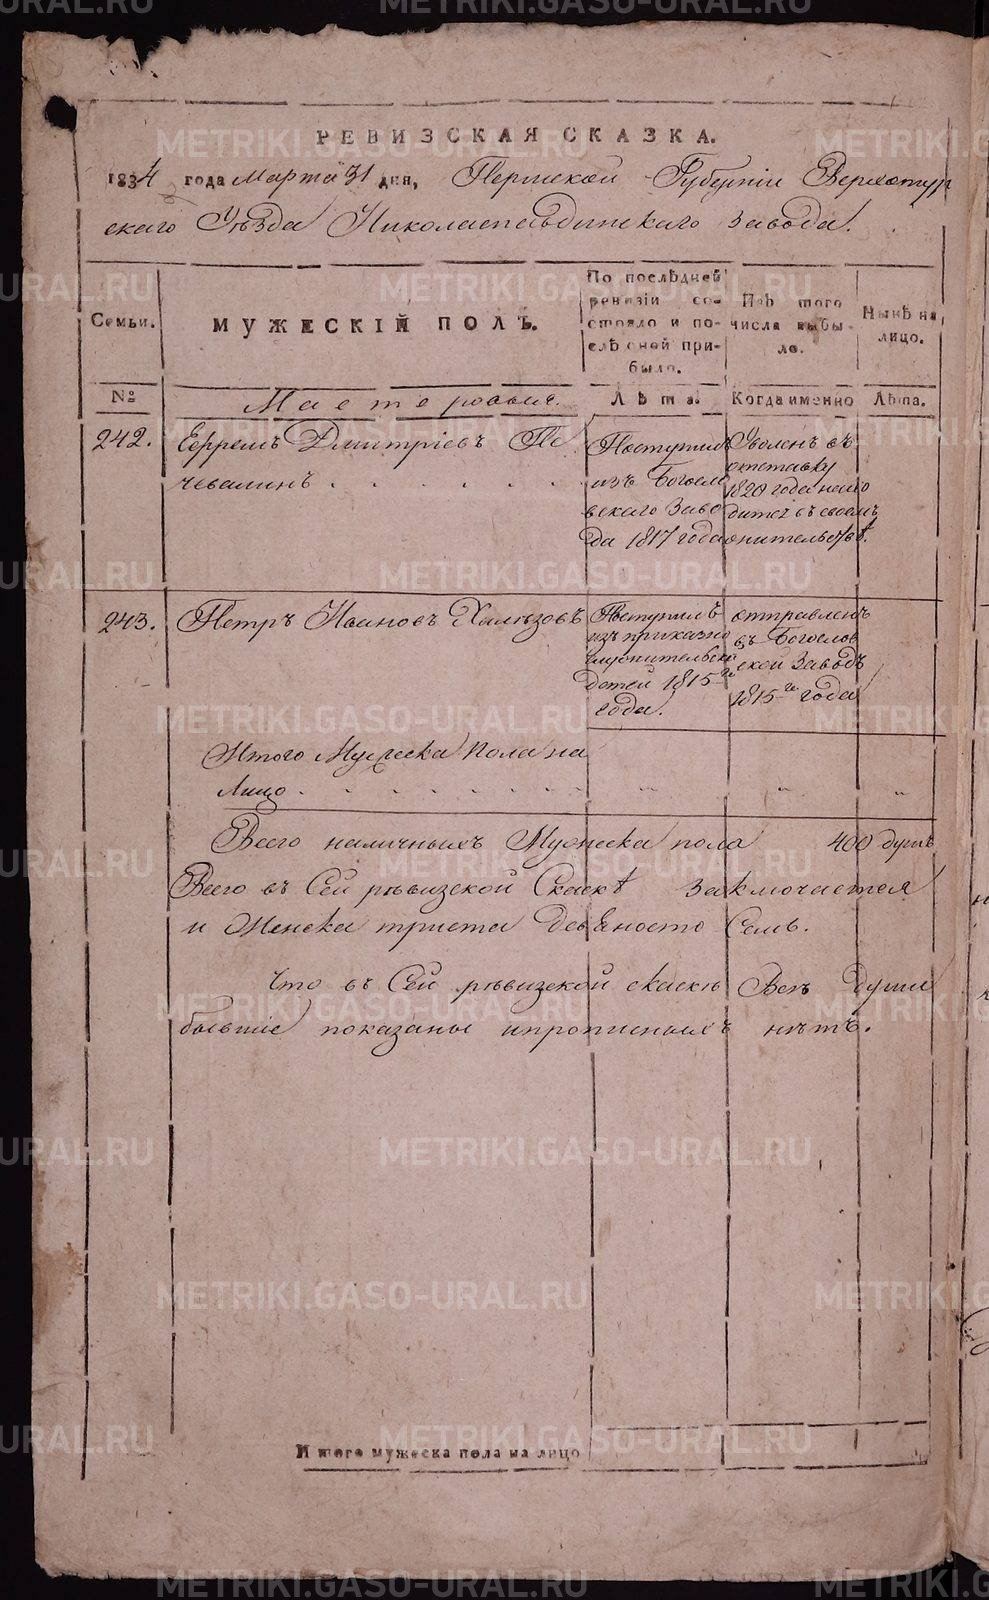 РЕВИЗСКАЯ СКАЗКА.
1834 года Марта 31 дня, Пермской Губернiи Верхотур
скаго Уѣзда Николаепавдинскаго завода.
Семьи.
МУЖЕСКIЙ ПОЛЪ.
По послѣдней
ревизiи со-
стояло и по-
слѣ оной при-
было.
Изъ того
числа выбы-
ло.
Нынѣ на
лицо.
№
Мастеровые.
Лѣта.
Когда именно
Лѣта.
242.
Ефремъ Дмитрiевъ Пе
чевалинъ
Поступилъ
изъ Богосло
вскаго Заво
да 1817 года
Уволенъ въ
отставку
1820 года нахо
дитсѧ въ своемъ
243.
Петръ Ивановъ Халезовъ
Поступилъ
изъ приказно
служительски
детей 1815го
года.
отправленъ
въ Богослов
ской Заводъ
1815го года
Итого Мужеска пола на
лицо
Всего наличныхъ Мужеска пола 400 душъ
Всего въ Сей ревизской Скаскѣ заключается
и Женска триста девяносто Семь.
Что въ Сей ревизской скаске Все души
бывшiе показаны и прописныхъ нетъ.
Итого мужеска пола на лицо
METRIKI.GASO-URAL.RU